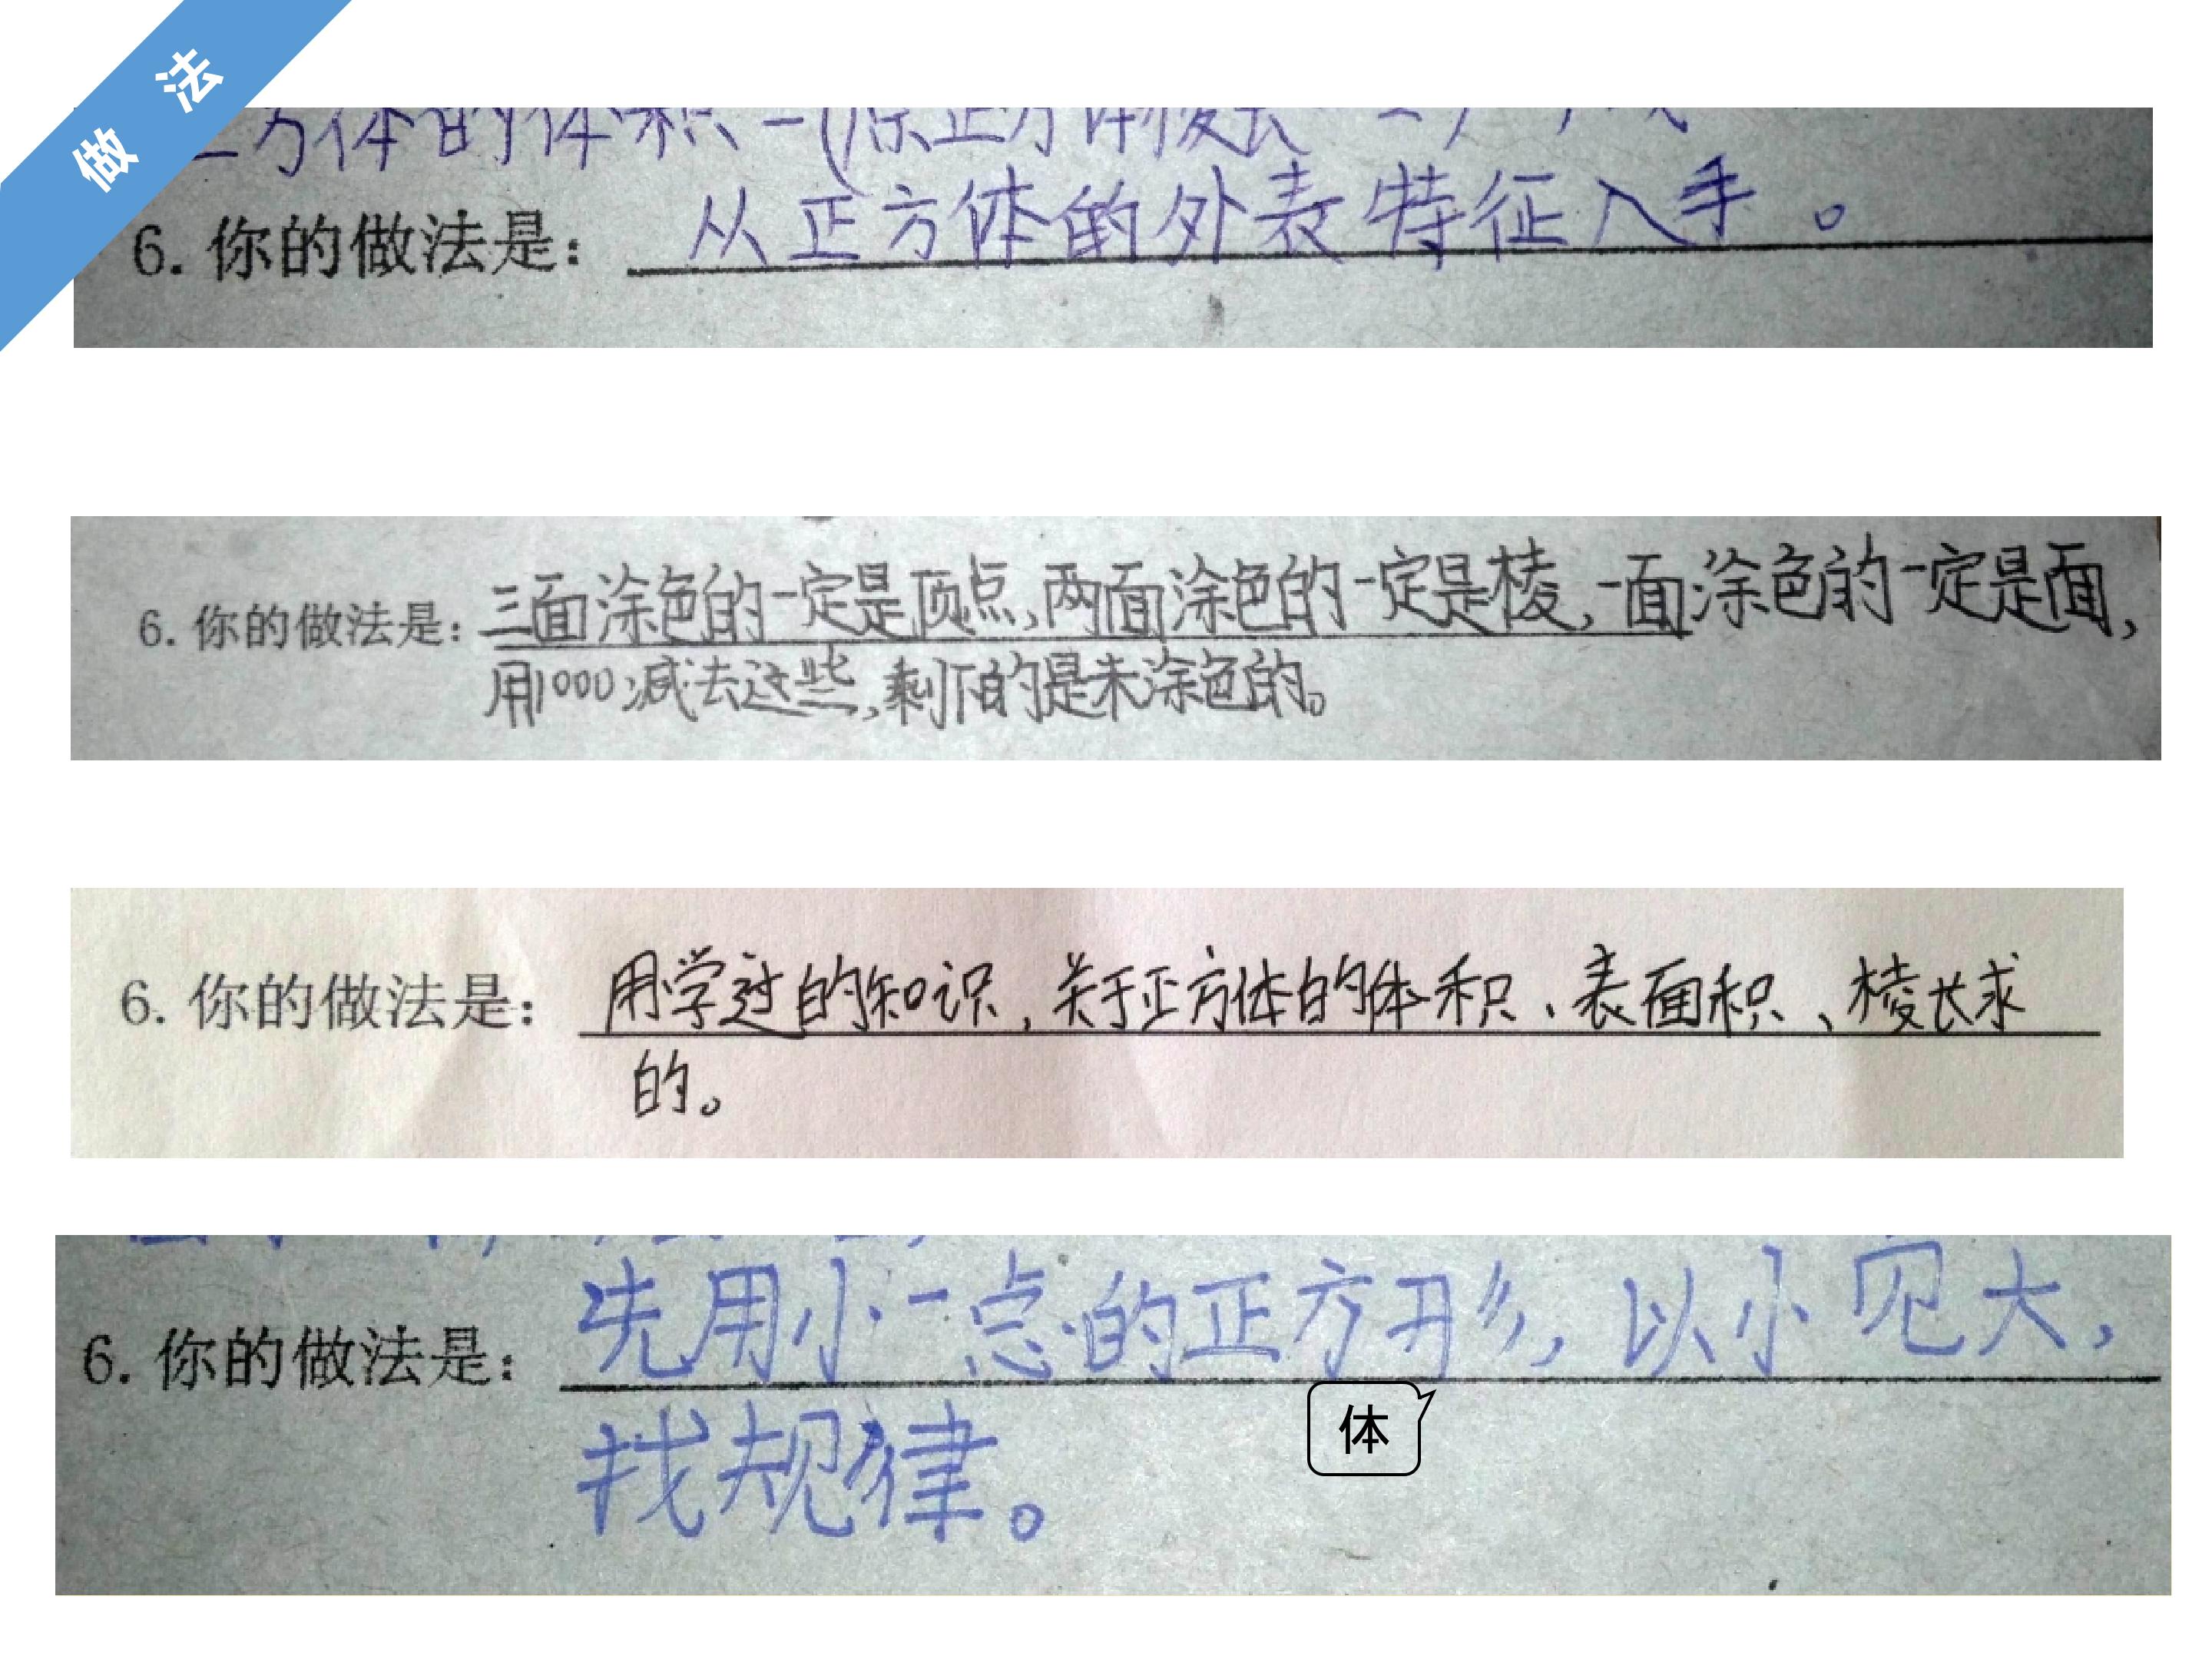 做 法
方体的体积-(原正方体棱长
从正方体的外表特征入手。
6. 你的做法是:
三面涂色的一定是顶点,两面涂色的一定是棱,一面涂色的一定是面,
6. 你的做法是:
用1000减去这些,剩下的是未涂色的。
6. 你的做法是: 用学过的知识,关于正方体的体积、表面积、棱长求
的。
先用小一点的正方形,以小见大,
6. 你的做法是:
体
找规律。